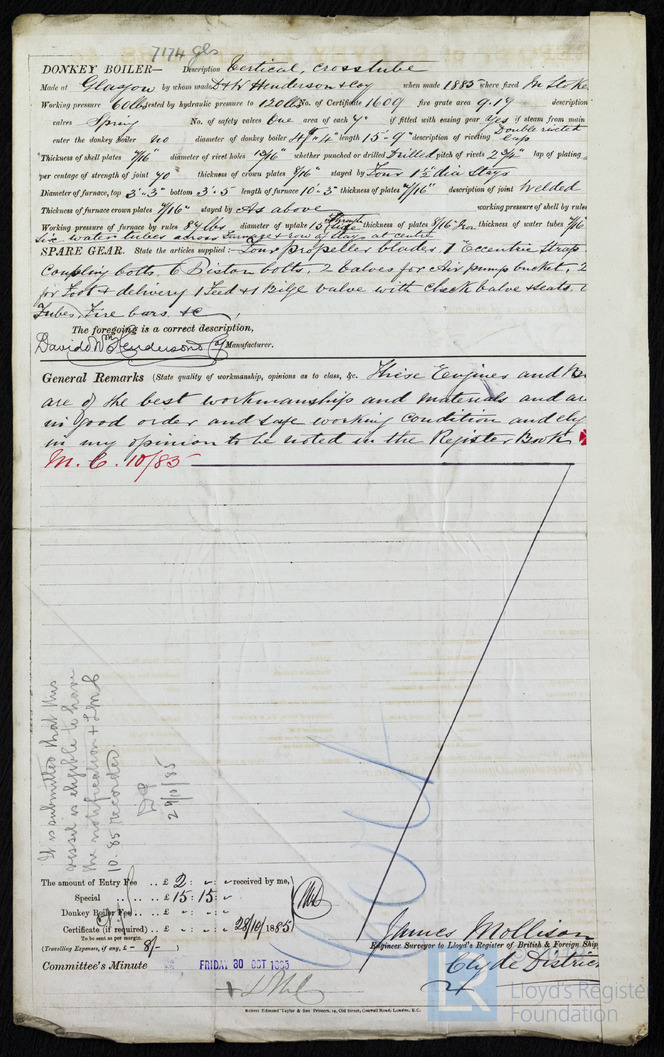 7174 gls
DONKEY BOILER— Description Vertical, crosstube
Made at Glasgow by whom made D & W Henderson & Coy when made 1885 where fixed In Stoke
Working pressure 60 lbs tested by hydraulic pressure to 120 lbs No. of Certificate 1609 fire grate area 9.19 description
valves Spring No. of safety valves One area of each 7" if fitted with easing gear Yes if steam from main
enter the donkey boiler No diameter of donkey boiler 4ft 4" length 15-9" description of riveting Double riveted lap
Thickness of shell plates 7/16" diameter of rivet holes 13/16" whether punched or drilled Drilled pitch of rivets 2 3/4" lap of plating
per centage of strength of joint 70 thickness of crown plates 9/16" stayed by Four 1 1/2" dia Stays
Diameter of furnace, top 3'-3" bottom 3'.5" length of furnace 10-3" thickness of plates 9/16" description of joint Welded
Thickness of furnace crown plates 9/16" stayed by As above working pressure of shell by rules
Working pressure of furnace by rules 87 lbs diameter of uptake 15" thickness of plates 5/16" Iron thickness of water tubes 7/16"
Six water tubes across furnace & row of stays at centre
SPARE GEAR. State the articles supplied:— Four propeller blades, 1 Eccentric Strap
Coupling bolts, 6 Piston bolts, 2 valves for Air pump bucket, 2
for Foot & delivery 1 Feed & 1 Bilge valve with check valve & seats.
Tubes, Fire bars, &c
The foregoing is a correct description,
David & Wm Henderson & Coy Manufacturer.
General Remarks (State quality of workmanship, opinions as to class, &c. These Engines and Bo
are of the best workmanship and materials and ar
in good order and safe working condition and elig
in my opinion to be noted in the Register Book
M.C. 10/85
It is submitted that this
vessel is eligible to have
the notification + LMC
10.85 recorded
29/10/85
The amount of Entry Fee .. £ 2 : - : - received by me,
Special .. £ 15 : 15 : -
Donkey Boiler Fee .. £ - : - : -
Certificate (if required) .. £ - : - : - 28/10/1885
To be sent as per margin.
(Travelling Expenses, if any, £ - 8/- )
James Mollison
Engineer Surveyor to Lloyd's Register of British & Foreign Ship
Clyde District
Committee's Minute FRIDAY 30 OCT 1885
+ LMC
LR
Lloyd's Register
Foundation
Robert Edmund Taylor & Son Printers, 19, Old Street, Goswell Road, London, E.C.